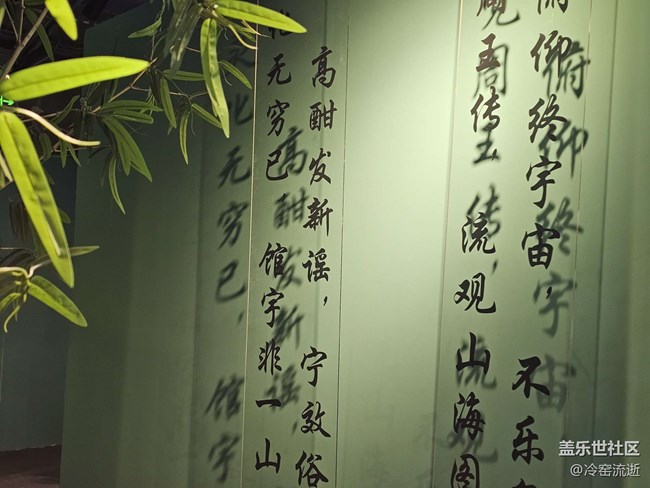 化无穷已 馆宇非一山
高酣发新谣，宁效俗
王传，流观山海图
仰终宇宙，不乐
盖乐世社区
@冷窑流逝